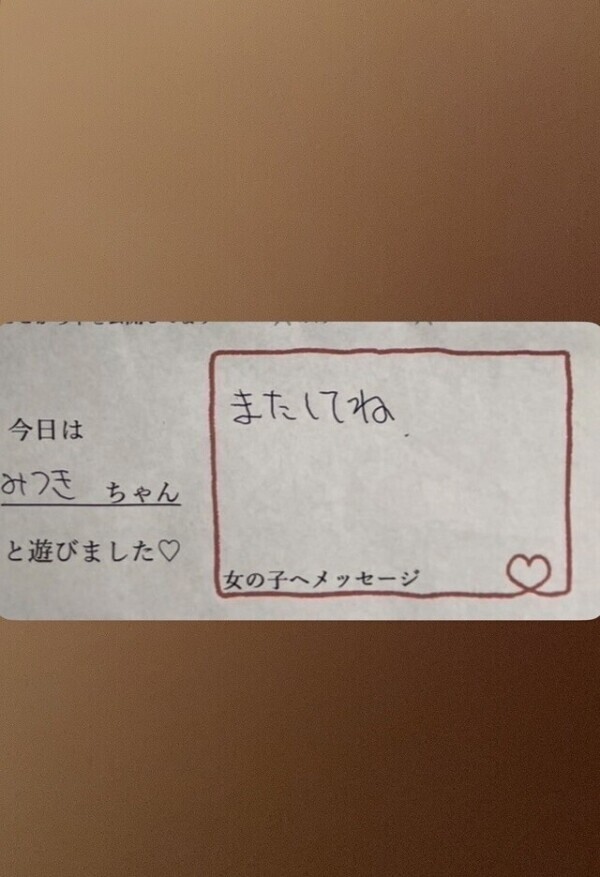 今日は
みつき ちゃん
と遊びました♡
またしてね
女の子へメッセージ